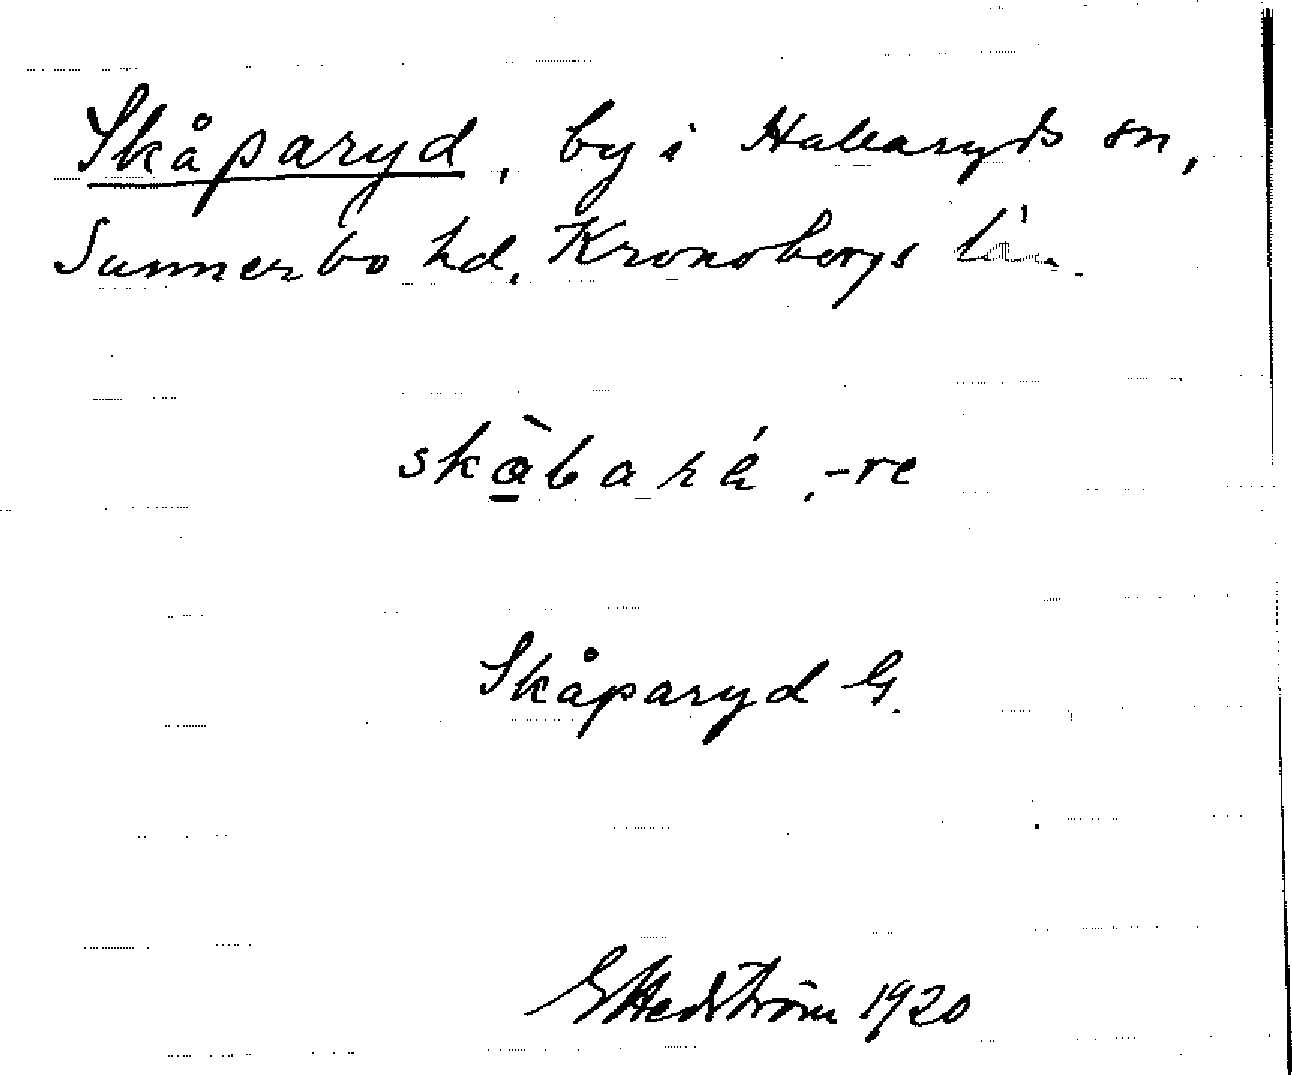 Skåparyd, by i Hallaryds sn,
Sunnerbo hd, Kronobergs län.
skàbaré, -re
Skåparyd G.
G Hedström 1920